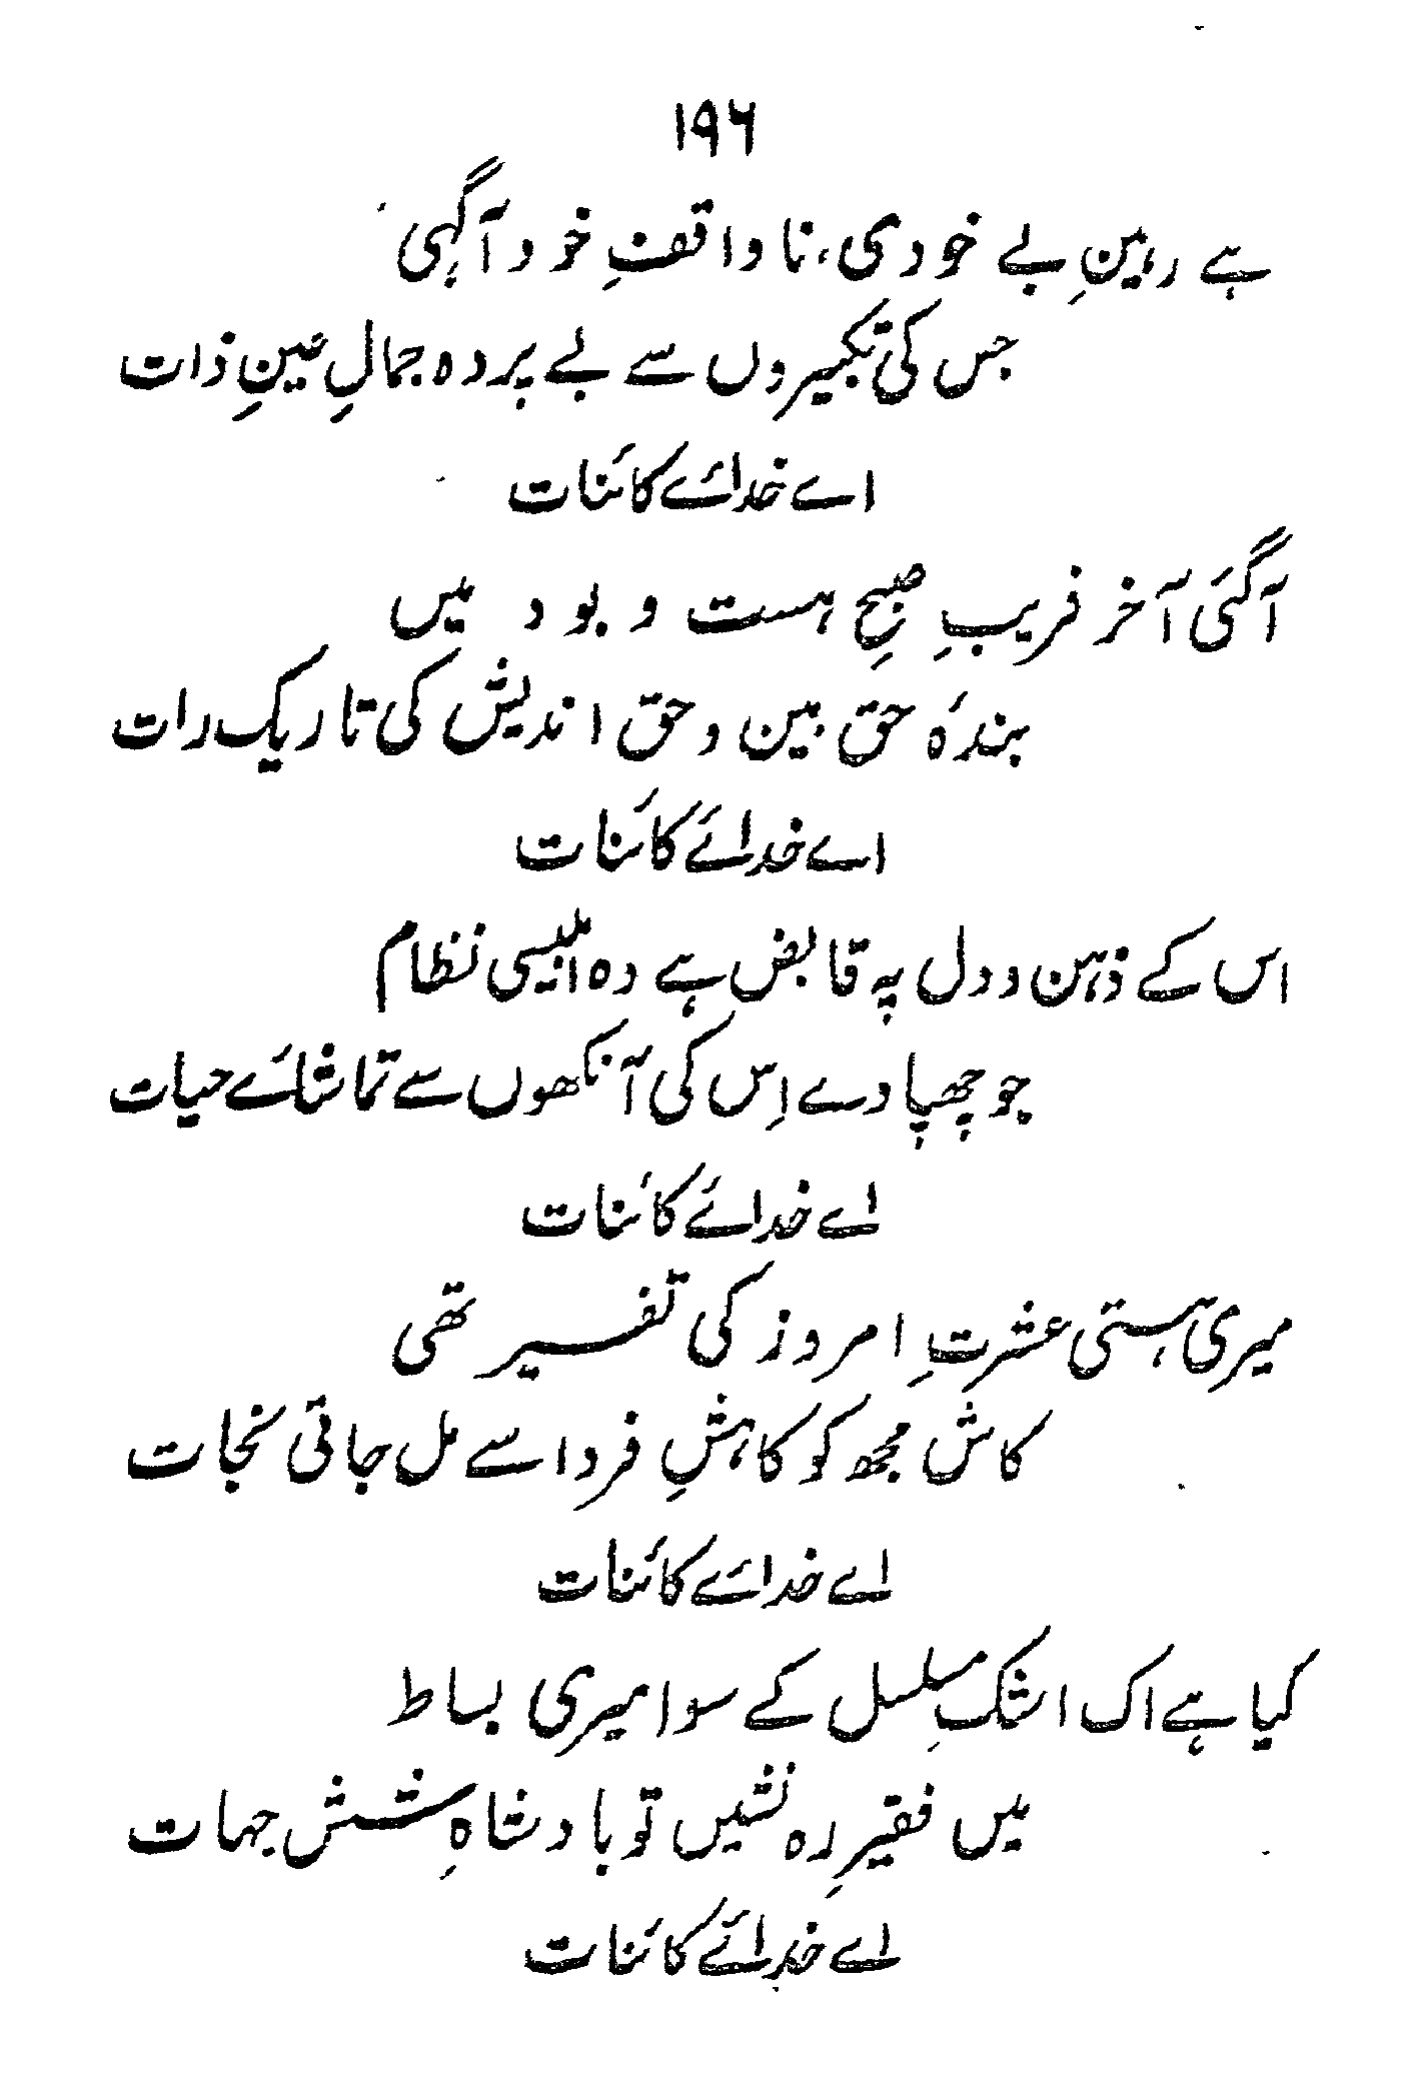 ۱۹۶
ہے رہینِ بے خودی، نا واقفِ خود آگہی
جس کی تکبیروں سے بے پردہ جمالِ عینِ ذات
اے خدائے کائنات
آگئی آخر فریبِ صبحِ ہست و بود میں
بندۂ حق بین و حق اندیش کی تاریک رات
اے خدائے کائنات
اس کے ذہن و دل پہ قابض ہے وہ ابلیسی نظام
جو چھپا دے اِس کی آنکھوں سے تماشائے حیات
اے خدائے کائنات
میری ہستی عشرتِ امروز کی تفسیر تھی
کاش مجھ کو کاہشِ فردا سے مل جاتی نجات
اے خدائے کائنات
کیا ہے اک اشکِ مسلسل کے سوا میری بساط
میں فقیرِ رہ نشیں تو بادشاہِ شش جہات
اے خدائے کائنات